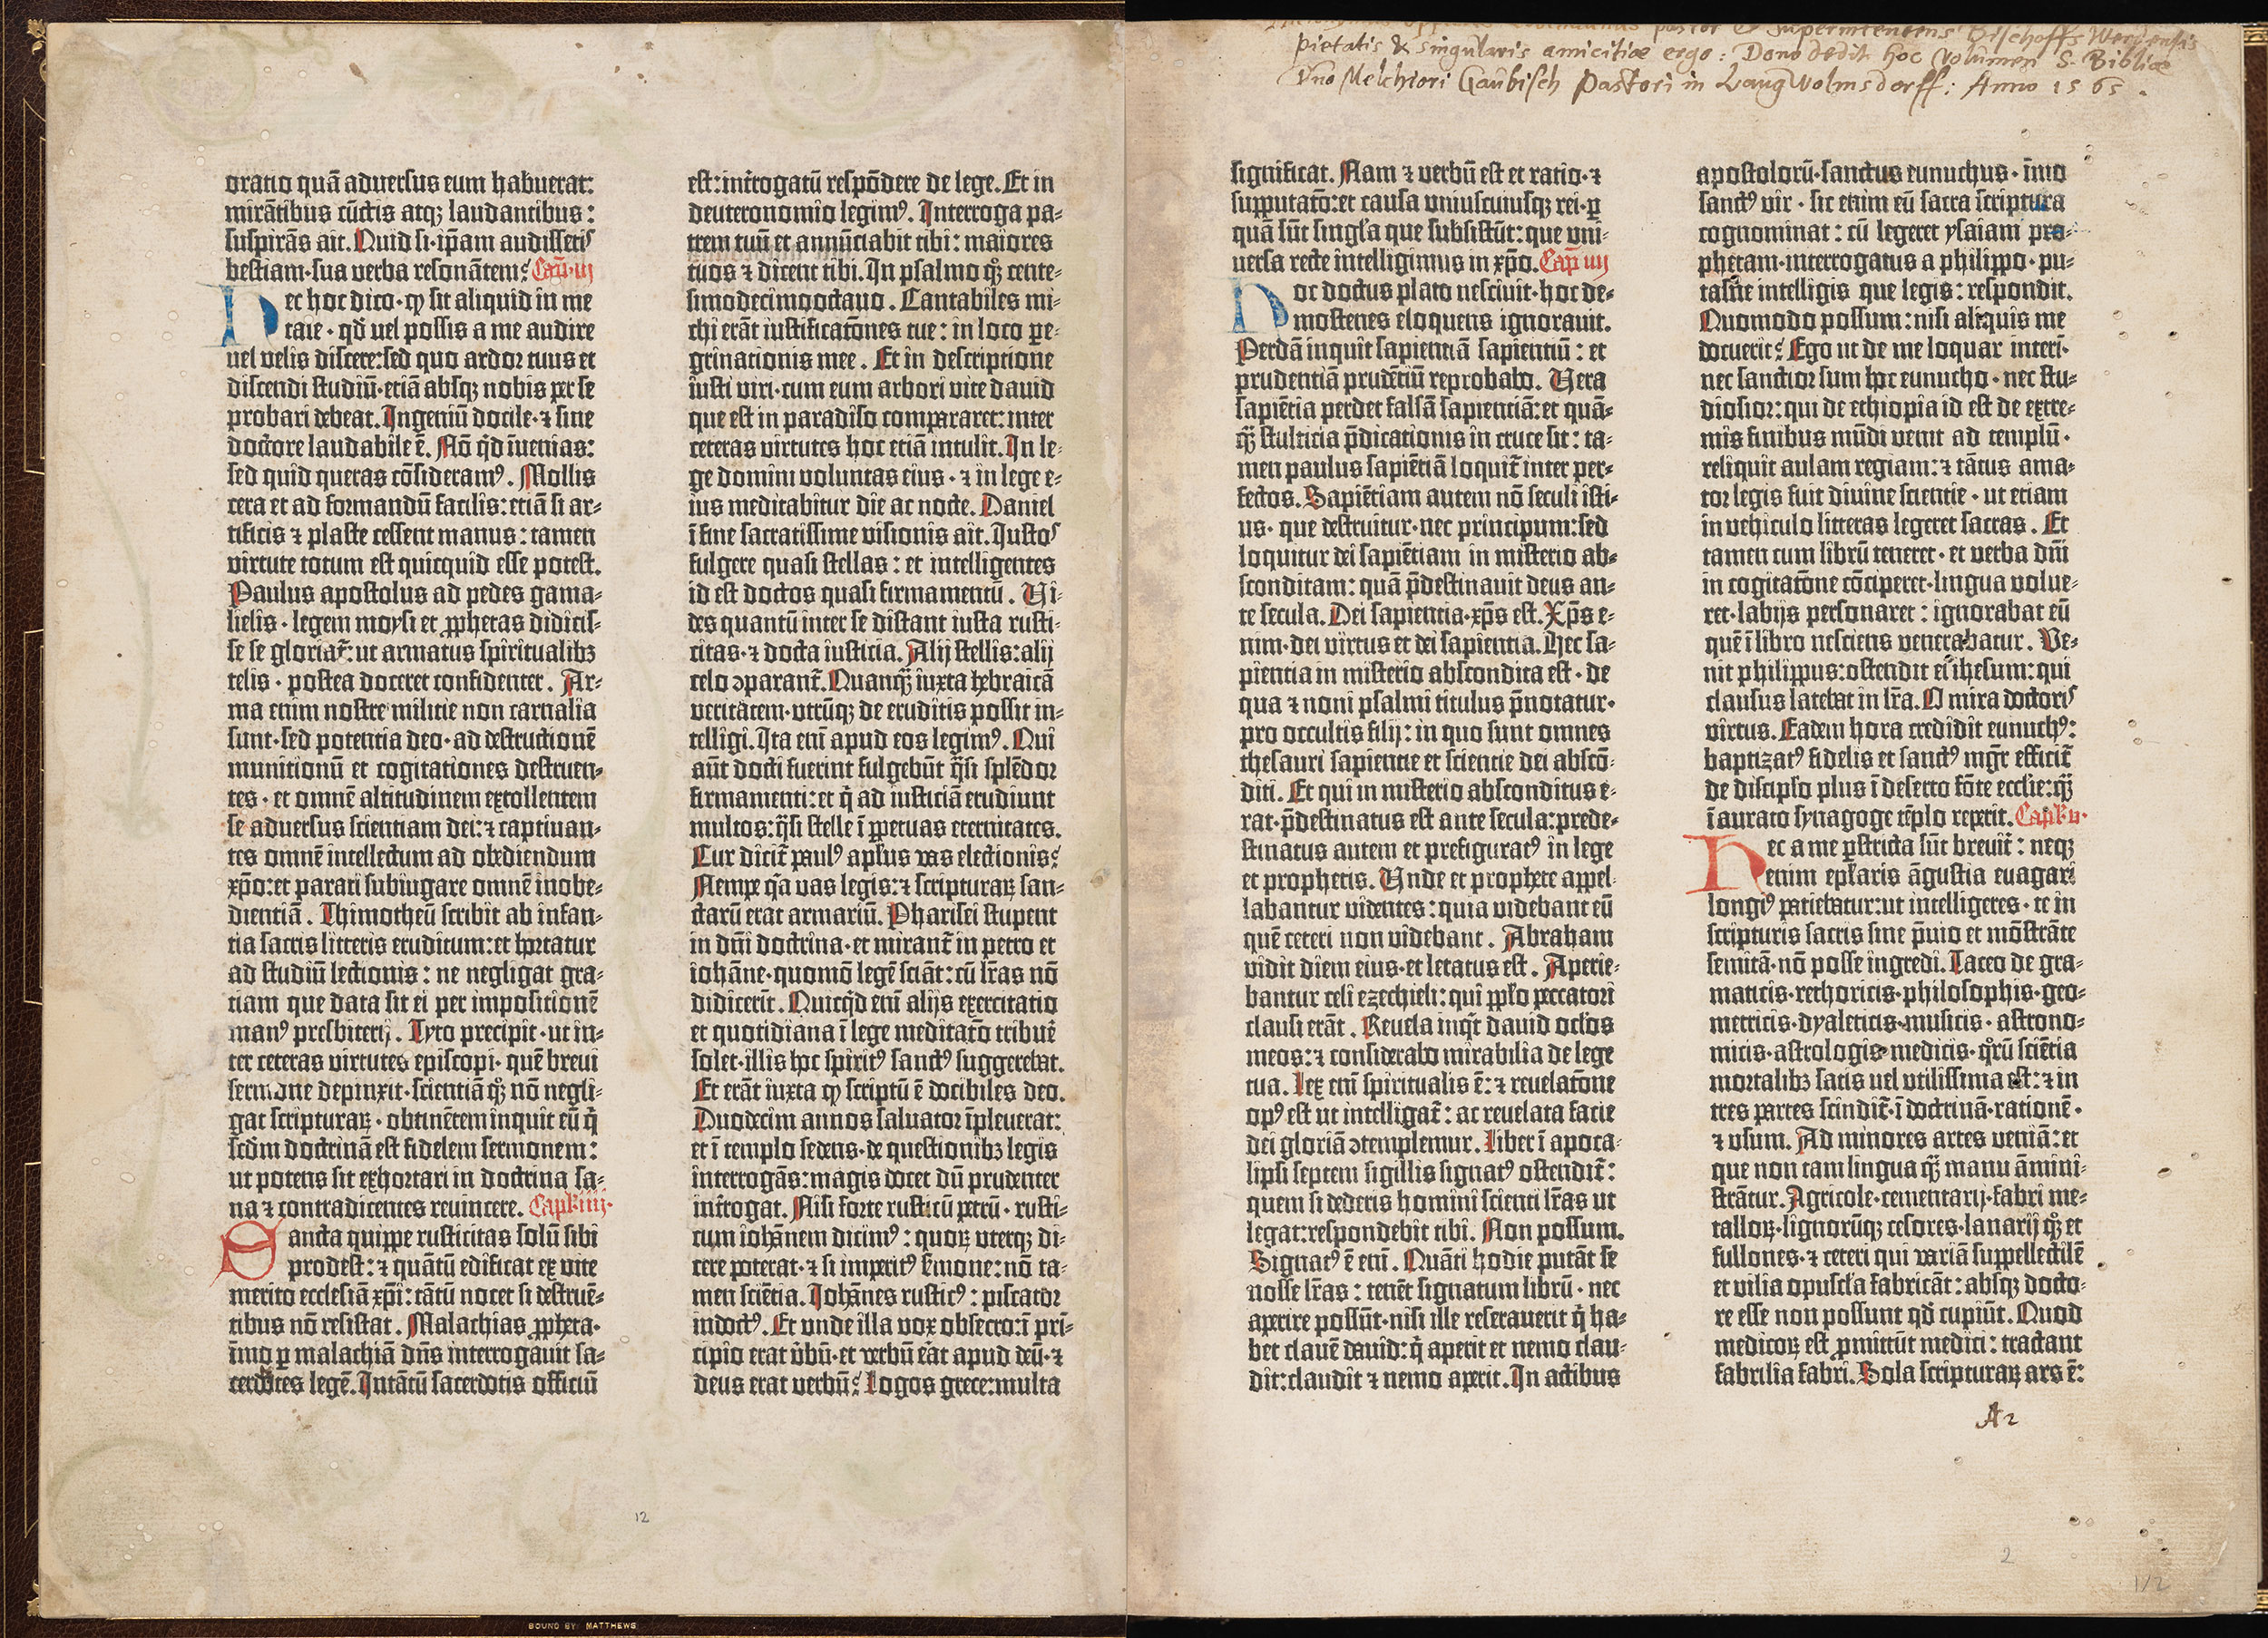 oratio quā adversus eum habuerat:
mirātibus cūctis atqȝ laudantibus:
suspirās ait. Quid si·ip̄am audissetis
bestiam·sua verba resonātem? Cap̄·iij
Nec hoc dico·ꝙ sit aliquid in me
taie·qd̄ vel possis a me audire
vel velis discere:sed quo ardor tuus et
discendi studiū·etiā absqȝ nobis per se
probari debeat. Ingeniū docile·⁊ sine
doctore laudabile ē. Nō qͥd īvenias:
sed quid queras cōsideramꝰ. Mollis
cera et ad formandū facilis:etiā si ar-
tificis ⁊ plaste cessent manus: tamen
virtute totum est quicquid esse potest.
Paulus apostolus ad pedes gama-
lielis·legem moysi et ꝓphetas didicis-
se se gloriat̄:ut armatus spiritualibȝ
telis·postea doceret confidenter. Ar-
ma enim nostre militie non carnalia
sunt·sed potentia deo·ad destructionē
munitionū et cogitationes destruen-
tes·et omnē altitudinem extollentem
se adversus scientiam dei:⁊ captivan-
tes omnē intellectum ad obediendum
xp̄o:et parati subiugare omnē inobe-
dientiā. Thimotheū scribit ab infan-
tia sacris litteris eruditum:et hortatur
ad studiū lectionis: ne negligat gra-
tiam que data sit ei per impositionē
manꝰ presbiterij. Tyto precipit·ut in-
ter ceteras virtutes episcopi·quē brevi
sermone depinxit·scientiā qͦȝ nō negli-
gat scripturaꝝ·obtinētem inquit eū qͥ
scd̄m doctrinā est fidelem sermonem:
ut potens sit exhortari in doctrina sa-
na ⁊ contradicentes revincere. Cap̄iiij·
Sancta quippe rusticitas solū sibi
prodest:⁊ quātū edificat ex vite
merito ecclesiā xp̄i:tātū nocet si destruē-
tibus nō resistat. Malachias ꝓpheta·
īmo ꝑ malachiā dn̄s interrogavit sa-
cerdotes legē. Intātū sacerdotis officiū
est:int̓rogatū respōdere de lege. Et in
deuteronomio legimꝰ. Interroga pa-
trem tuū et annūciabit tibi: maiores
tuos ⁊ dicent tibi. In psalmo qͦȝ cente-
simodecimooctavo. Cantabiles mi-
chi erāt iustificatōnes tue: in loco pe-
grinationis mee. Et in descriptione
iusti viri·cum eum arbori vite david
que est in paradiso compararet:inter
ceteras virtutes hoc etiā intulit. In le-
ge domini voluntas eius·⁊ in lege e-
ius meditabitur die ac nocte. Daniel
ī fine sacratissime visionis ait. Iustos
fulgere quasi stellas: et intelligentes
id est doctos quasi firmamentū. Vi-
des quantū inter se distant iusta rusti-
citas·⁊ docta iusticia. Alij stellis:alij
celo ↄparant̄. Quanqͣȝ iuxta hebraicā
veritatem·utrūqȝ de eruditis possit in-
telligi. Ita enī apud eos legimꝰ. Qui
aūt docti fuerint fulgebūt qͣsi splēdor
firmamenti:et qͥ ad iusticiā erudiunt
multos:qͣsi stelle ī ꝑpetuas eternitates.
Cur dicit̄ paulꝰ apl̄us vas electionis?
Nempe qͥa vas legis:⁊ scripturaꝝ san-
ctarū erat armariū. Pharisei stupent
in dn̄i doctrina·et mirant̄ in petro et
iohāne·quomō legē sciāt:cū lr̄as nō
didicerīt. Quicqͥd enī alijs exercitatio
et quotidiana ī lege meditatō tribuē
solet·illis hoc spiritꝰ sanctꝰ suggerebat.
Et erāt iuxta ꝙ scriptū ē docibiles deo.
Duodecim annos salvator īpleverat:
et ī templo sedens·de questionibȝ legis
interrogās:magis docet dū prudenter
int̓rogat. Nisi forte rusticū petrū·rusti-
cum iohānem dicimꝰ: quoꝝ uterqȝ di-
cere poterat·⁊ si imperitꝰ s̓mone:nō ta-
men sciētia. Iohānes rusticꝰ: piscator
indoctꝰ. Et unde illa vox obsecro:ī pri-
cipio erat v̓bū·et verbū erat apud deū·⁊
deus erat verbū? Logos grece:multa
12
BOUND BY MATTHEWS
pietatis & singularis amicitiae ergo: Dono dedit hoc volumen S. Bibliae
Dno Melchiori Gaubisch Pastori in LangWolmsdorff: Anno 1565.
significat. Nam ⁊ verbū est et ratio·⁊
supputatō:et causa uniuscuiusqȝ rei·ꝑ
quā sūt singl̓a que subsistūt:que uni-
versa recte intelligimus in xp̄o. Cap̄ iiij
Hoc doctus plato nescivit·hoc de-
mostenes eloquens ignoravit.
Perdā inquit sapientiā sapientiū: et
prudentiā prudētiū reprobabo. Vera
sapiētia perdet falsā sapientiā:et quā-
qͣȝ stulticia p̄dicationis in cruce sit: ta-
men paulus sapiētiā loquit̄ inter per-
fectos. Sapiētiam autem nō seculi isti-
us·que destruitur·nec principum:sed
loquitur dei sapiētiam in misterio ab-
sconditam: quā p̄destinavit deus an-
te secula. Dei sapientia·xp̄s est. Xp̄s e-
nim·dei virtus et dei sapientia. Hec sa-
pientia in misterio abscondita est·de
qua ⁊ noni psalmi titulus p̄notatur·
pro occultis filij: in quo sunt omnes
thesauri sapientie et scientie dei abscō-
diti. Et qui in misterio absconditus e-
rat·p̄destinatus est ante secula:prede-
stinatus autem et prefiguratꝰ in lege
et prophetis. Unde et prophete appel-
labantur videntes: quia videbant eū
quē ceteri non videbant. Abraham
vidit diem eius·et letatus est. Aperie-
bantur celi ezechieli: qui ppl̓o peccatori
clausi erāt. Revela inqͥt david ocl̓os
meos:⁊ considerabo mirabilia de lege
tua. Lex enī spiritualis ē:⁊ revelatōne
opꝰ est ut intelligat̄: ac revelata facie
dei gloriā ↄtemplemur. Liber ī apoca-
lipsi septem sigillis signatꝰ ostendit̄:
quem si dederis homini scienti lr̄as ut
legat:respondebit tibi. Non possum.
Signatꝰ ē enī. Quāti hodie putāt se
nosse lr̄as: tenēt signatum librū·nec
aperire possūt·nisi ille reseraverit qͥ ha-
bet clavē david:qͥ aperit et nemo clau-
dit:claudit ⁊ nemo aperit. In actibus
apostolorū·sanctus eunuchus·īmo
sanctꝰ vir·sic enim eū sacra scriptura
cognominat: cū legeret ysaiam pro-
phetam·interrogatus a philippo·pu-
tasne intelligis que legis: respondit.
Quomodo possum: nisi aliquis me
docuerit? Ego ut de me loquar interī·
nec sanctior sum hoc eunucho·nec stu-
diosior:qui de ethiopia id est de extre-
mis finibus mūdi venit ad templū·
reliquit aulam regiam:⁊ tātus ama-
tor legis fuit divine scientie·ut etiam
in vehiculo litteras legeret sacras. Et
tamen cum librū teneret·et verba dn̄i
in cogitatōne cōciperet·lingua volve-
ret·labijs personaret: ignorabat eū
quē ī libro nesciens venerabatur. Ve-
nit philippus:ostendit ei ihesum:qui
clausus latebat in lr̄a. O mira doctoris
virtus. Eadem hora credidit eunuchꝰ:
baptizatꝰ fidelis et sanctꝰ mgr̄ efficit̄
de discipl̓o plus ī deserto fōte eccl̓ie:qͣȝ
ī aurato synagoge tēplo reperit. Cap̄ v·
Hec a me ꝑstricta sūt brevit̄: neqȝ
enim epl̓aris āgustia evagari
longiꝰ patiebatur:ut intelligeres·te in
scripturis sacris sine p̄vio et mōstrāte
semitā·nō posse ingredi. Taceo de gra-
maticis·rethoricis·philosophis·geo-
metricis·dyaleticis·musicis·astrono-
micis·astrologis·medicis·qͦrū sciētia
mortalibȝ satis vel utilissima est:⁊ in
tres partes scindit̄·ī doctrinā·rationē·
⁊ usum. Ad minores artes veniā:et
que non tam lingua qͣȝ manu āmini-
strātur. Agricole·cementarij·fabri me-
talloꝝ·lignorūqȝ cesores·lanarij qͦȝ et
fullones·⁊ ceteri qui variā suppellectilē
et vilia opuscl̓a fabricāt: absqȝ docto-
re esse non possunt qd̄ cupiūt. Quod
medicoꝝ est ꝓmittūt medici: tractant
fabrilia fabri. Sola scripturaꝝ ars ē:
A2
2
1/2